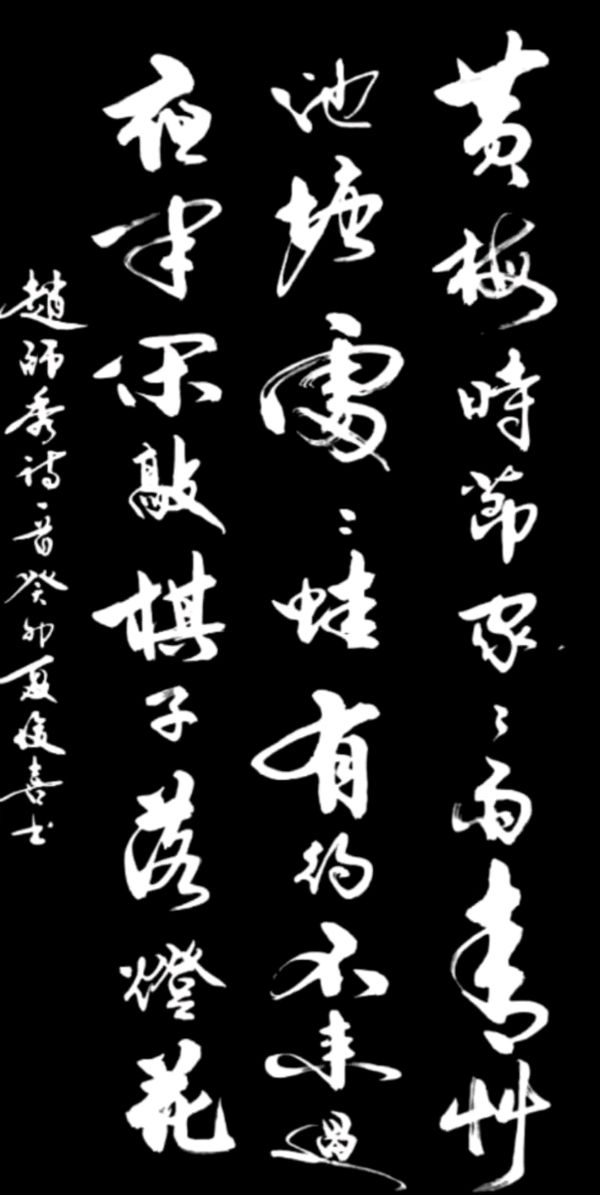 黄梅時節家〻雨青艸
池塘處〻蛙有約不来過
夜半閑敲棋子落燈花
趙師秀詩一首癸卯夏俊喜书